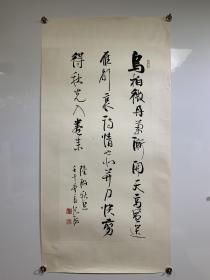 烏桕微丹菊漸開天高風送
雁聲哀詩情也似并刀快剪
得秋光入卷來
陸游秋思
壬午